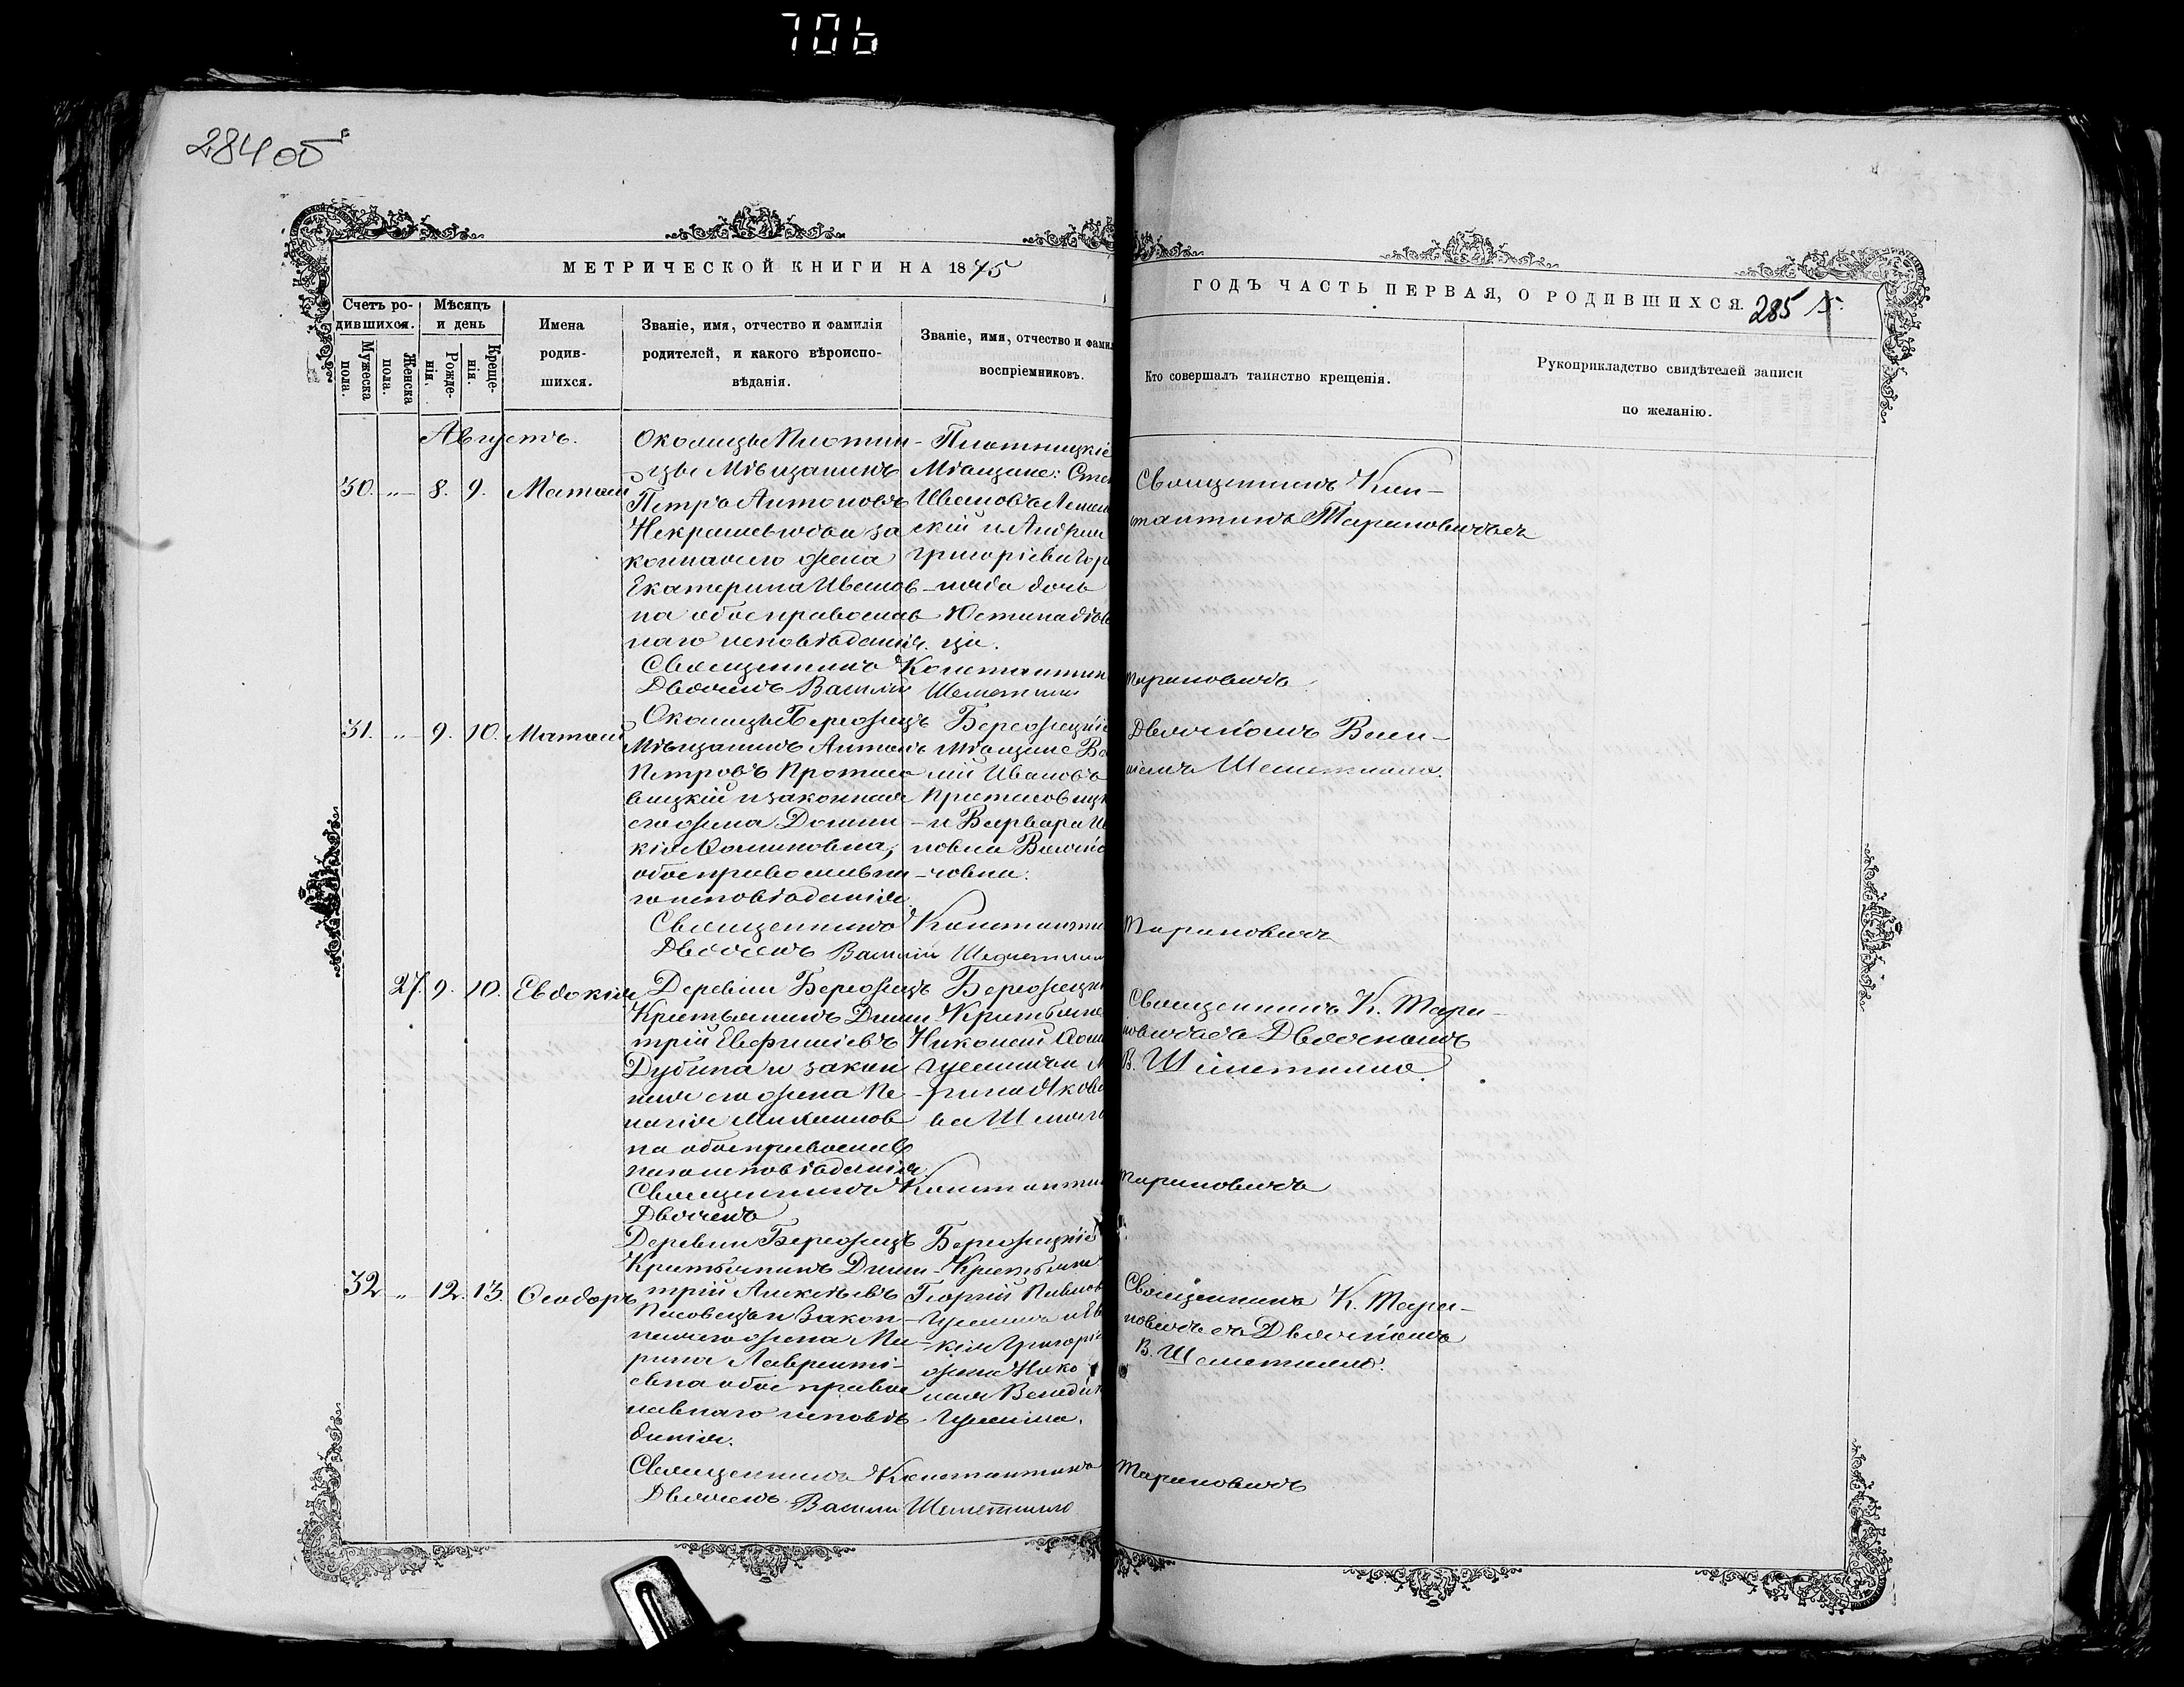 706
284 об
МЕТРИЧЕСКОЙ КНИГИ НА 1875
ГОДЪ ЧАСТЬ ПЕРВАЯ, О РОДИВШИХСЯ.
285
Счетъ ро-
дившихся.
Мужеска
пола.
Женска
пола.
Мѣсяцъ
и день
Рожде-
нія.
Креще-
нія.
Имена
родив-
шихся.
Званіе, имя, отчество и фамилія
родителей, и какого вѣроиспо-
вѣданія.
Званіе, имя, отчество и фами
воспріемниковъ.
Кто совершалъ таинство крещенія.
Рукоприкладство свидѣтелей записи
по желанію.
Августъ.
30. „ 8. 9. Матѳей
Околицы Плотни-
цы Мѣщанинъ
Петръ Антоновъ
и за
конная его жена
Екатерина Иванов-
на обое православ
наго исповѣданія.
Плотницкіе
Мѣщане:
Ивановъ
скій и Андрея
Григоріева
дочь
Юстина дѣви
ца.
Священникъ Кон-
стантинъ Тариновичъ съ
Священникъ Константинъ Тариновичъ
Дьячекъ Василій Шеметилло
31. „ 9. 10. Матѳей
Околицы Бережецъ
Мѣщанинъ Антонъ
Петровъ Протасо
вицкій и законная
его жена Домни-
кія Ѳоминовна,
обое православна
го исповѣданія.
Бережецкіе
Мѣщане Ва
лій Ивановъ
Протасовицк
и Варвара И
новна
човна.
Дьячкомъ Васи-
ліемъ Шеметилло.
Священникъ Константинъ Тариновичъ
Дьячекъ Василій Шеметилло
27. 9. 10. Евдокія
Деревни Бережецъ
Крестьянинъ Дими-
трій Евфиміевъ
Дубина и закон
ная его жена Пе-
лагія Михаилов
на обое православ
наго исповѣданія.
Бережецкіе
Крестьяне
Николай
Гуменичъ и М
рина Яковл
ва
Священникъ К. Тари-
новичъ съ Дьячкомъ
В. Шеметилло.
Священникъ Константинъ Тариновичъ
Дьячекъ
32 „ 12. 13. Ѳеодоръ
Деревни Бережецъ
Крестьянинъ Дими-
трій Алексѣевъ
и Закон-
ная его жена Ма-
рина Лавренті-
евна обое правос
лавнаго исповѣ-
данія.
Бережецкіе
Крестьяне
Георгій Павлов
Гуменичъ и Ев
кія Григорі
жена Нико
лая Венедик
Гуменича.
Священникъ К. Тари-
новичъ съ Дьячкомъ
В. Шеметилло.
Священникъ Константинъ Тариновичъ
Дьячекъ Василій Шеметилло